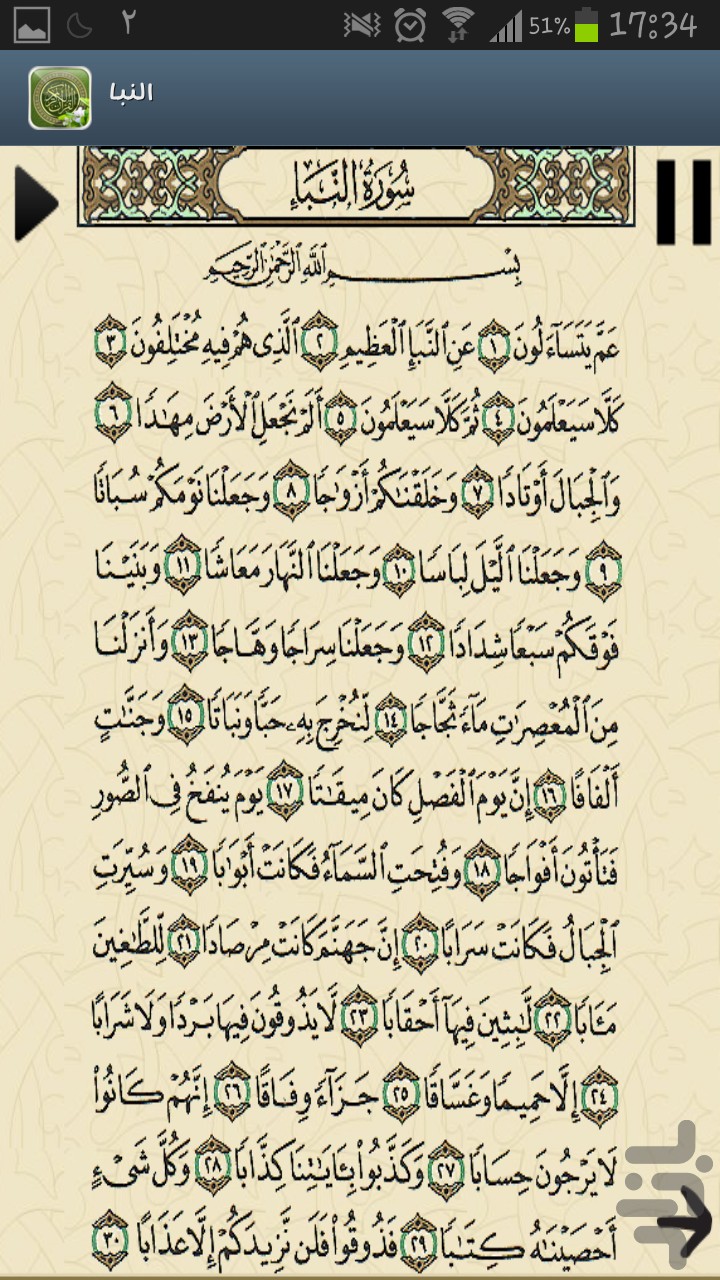 ٢ 51% 17:34
النبا
سُورَةُ النَّبَإِ
بِسْمِ ٱللَّهِ ٱلرَّحْمَٰنِ ٱلرَّحِيمِ
عَمَّ يَتَسَآءَلُونَ ١ عَنِ ٱلنَّبَإِ ٱلْعَظِيمِ ٢ ٱلَّذِى هُمْ فِيهِ مُخْتَلِفُونَ ٣
كَلَّا سَيَعْلَمُونَ ٤ ثُمَّ كَلَّا سَيَعْلَمُونَ ٥ أَلَمْ نَجْعَلِ ٱلْأَرْضَ مِهَٰدًا ٦
وَٱلْجِبَالَ أَوْتَادًا ٧ وَخَلَقْنَٰكُمْ أَزْوَٰجًا ٨ وَجَعَلْنَا نَوْمَكُمْ سُبَاتًا
٩ وَجَعَلْنَا ٱلَّيْلَ لِبَاسًا ١٠ وَجَعَلْنَا ٱلنَّهَارَ مَعَاشًا ١١ وَبَنَيْنَا
فَوْقَكُمْ سَبْعًا شِدَادًا ١٢ وَجَعَلْنَا سِرَاجًا وَهَّاجًا ١٣ وَأَنزَلْنَا
مِنَ ٱلْمُعْصِرَٰتِ مَآءً ثَجَّاجًا ١٤ لِّنُخْرِجَ بِهِۦ حَبًّا وَنَبَاتًا ١٥ وَجَنَّٰتٍ
أَلْفَافًا ١٦ إِنَّ يَوْمَ ٱلْفَصْلِ كَانَ مِيقَٰتًا ١٧ يَوْمَ يُنفَخُ فِى ٱلصُّورِ
فَتَأْتُونَ أَفْوَاجًا ١٨ وَفُتِحَتِ ٱلسَّمَآءُ فَكَانَتْ أَبْوَٰبًا ١٩ وَسُيِّرَتِ
ٱلْجِبَالُ فَكَانَتْ سَرَابًا ٢٠ إِنَّ جَهَنَّمَ كَانَتْ مِرْصَادًا ٢١ لِّلطَّٰغِينَ
مَـَٔابًا ٢٢ لَّٰبِثِينَ فِيهَآ أَحْقَابًا ٢٣ لَّا يَذُوقُونَ فِيهَا بَرْدًا وَلَا شَرَابًا
٢٤ إِلَّا حَمِيمًا وَغَسَّاقًا ٢٥ جَزَآءً وِفَاقًا ٢٦ إِنَّهُمْ كَانُوا۟
لَا يَرْجُونَ حِسَابًا ٢٧ وَكَذَّبُوا۟ بِـَٔايَٰتِنَا كِذَّابًا ٢٨ وَكُلَّ شَىْءٍ
أَحْصَيْنَٰهُ كِتَٰبًا ٢٩ فَذُوقُوا۟ فَلَن نَّزِيدَكُمْ إِلَّا عَذَابًا ٣٠